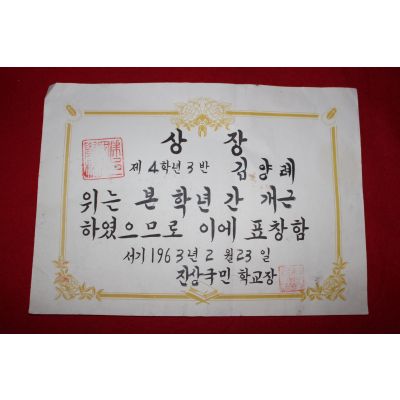 상장
제 4학년 3반 김양례
위는 본 학년 간 개근
하였으므로 이에 표창함
서기 1963년 2월 23일
진상국민학교장